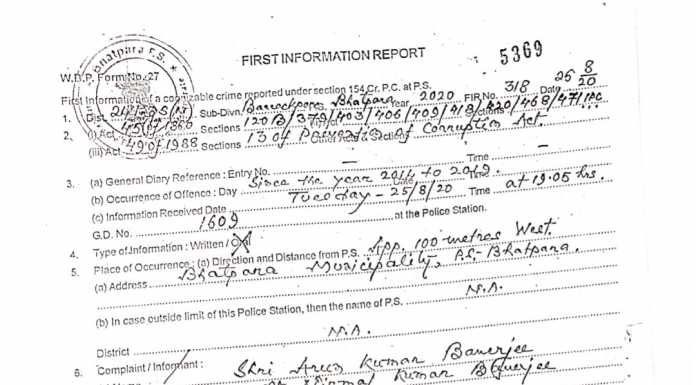 Bhatpara P.S.
FIRST INFORMATION REPORT
5369
W.B.P. Form No. 27
First Information of a cognizable crime reported under section 154 Cr. P.C. at P.S.
1. Dist. Sub-Divn. Barrackpore, Bhatpara Year 2020 FIR No. 318 Date 25 8/20
2. (i) Act 45 of 1860 Sections 120B/379/403/406/409/418/420/468/471 IPC
(iii) Act 49 of 1988 Sections 13 of Prevention of Corruption Act.
3. (a) General Diary Reference : Entry No. — Time —
(b) Occurrence of Offence : Day Since the year 2014 to 2019. Time
(c) Information Received Date Tuesday - 25/8/20 Time at 19.05 hrs.
G.D. No. 1609 at the Police Station.
4. Type of Information : Written / Oral
5. Place of Occurrence : (a) Direction and Distance from P.S. App. 100 metres West.
(a) Address Bhatpara Municipality, PS- Bhatpara.
(b) In case outside limit of this Police Station, then the name of P.S. N.A.
District N.A.
6. Complaint / Informant : Shri Arun Kumar Banerjee
Kumar Banerjee